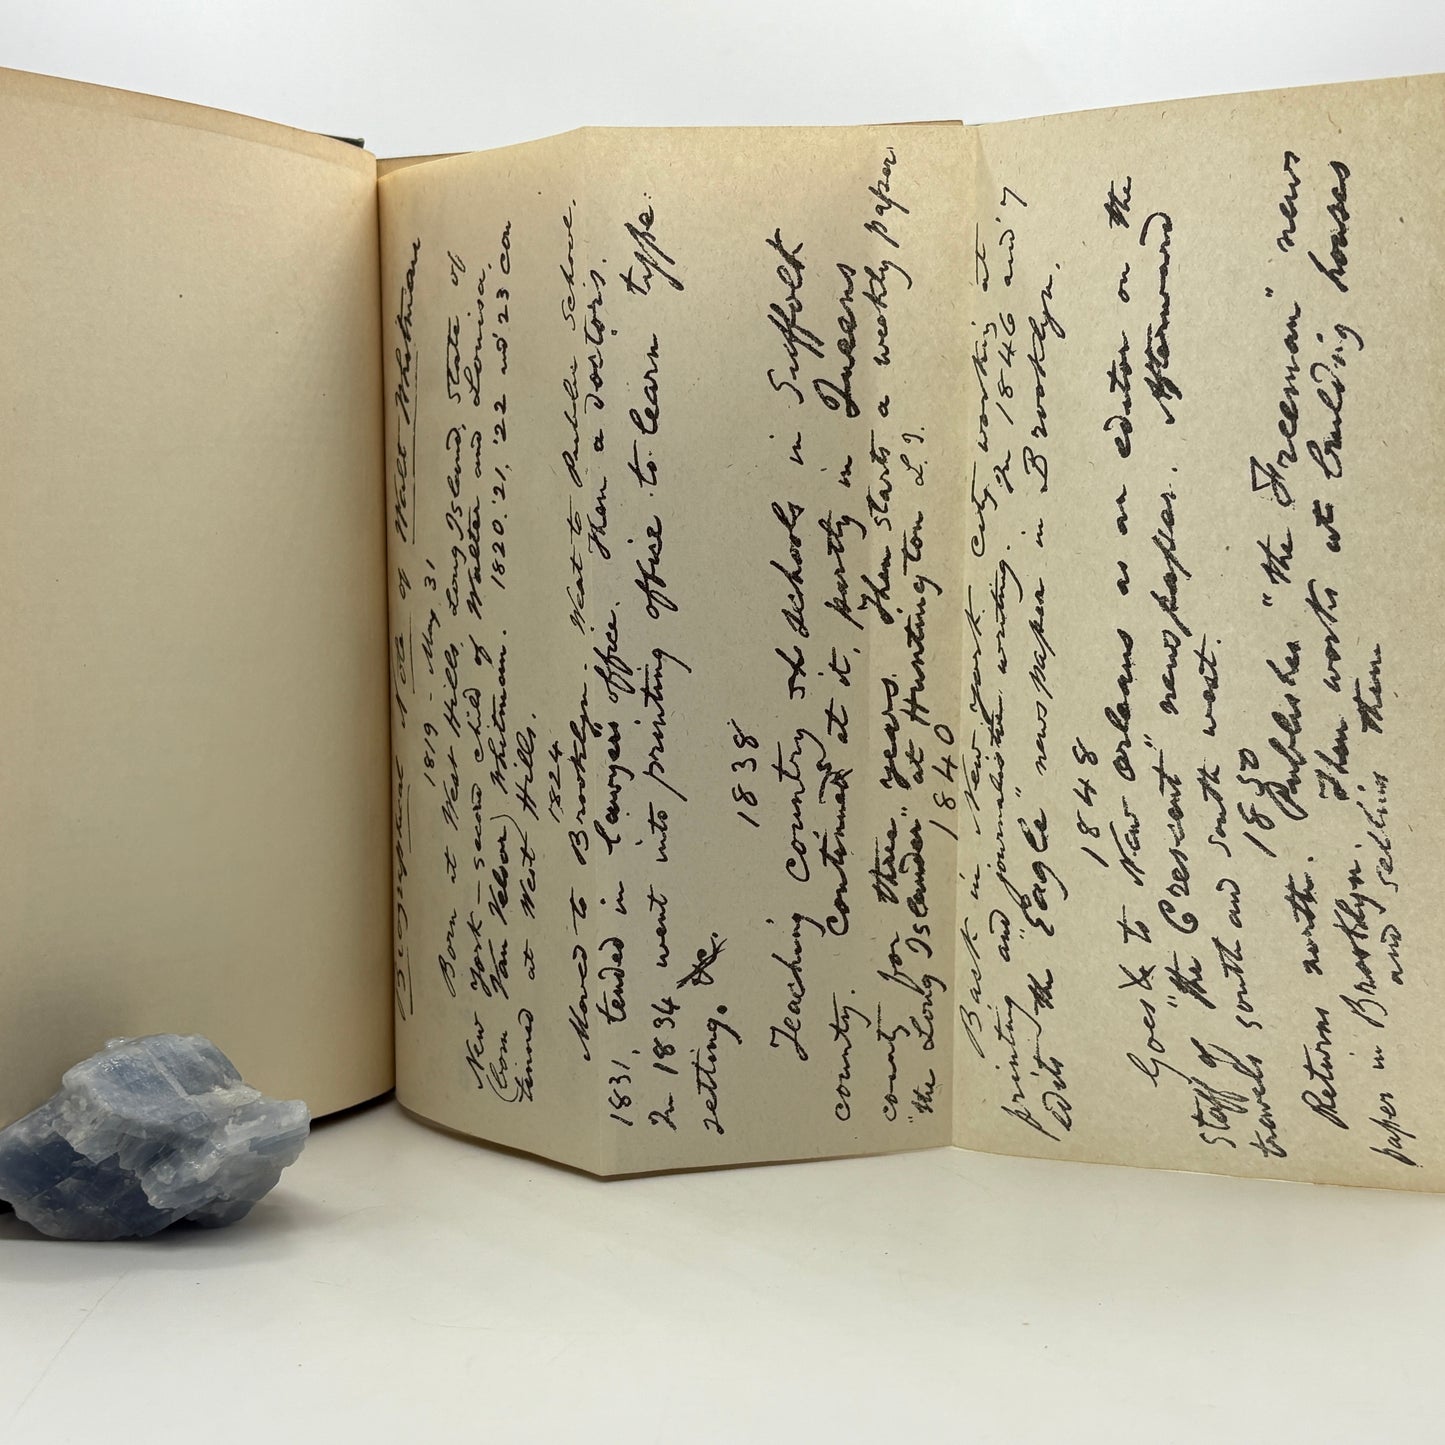 Biographical Note of Walt Whitman
1819 - May 31
Born at West Hills, Long Island, State of
New York - second child of Walter and Louisa,
(born Van Velsor) Whitman. 1820, '21, '22 and '23 con
tinued at West Hills.
1824
Moved to Brooklyn. Went to Public Schools.
1831, tended in lawyers office. Then a doctor's.
In 1834 went into printing office to learn type
setting.
1838
Teaching country schools in Suffolk
county. Continued at it, partly in Queens
county for three years. Then starts a weekly paper
"the Long Islander" at Huntington L. I.
1840
Back in New York City working at
printing and journalistic writing. In 1846 and '7
edits the "Eagle" newspaper in Brooklyn.
1848
Goes to New Orleans as an editor on the
staff of "the Crescent" newspaper. Afterward
travels south and south west.
1850
Returns north. Publishes "the Freeman" news
paper in Brooklyn. Then works at building houses
and selling them